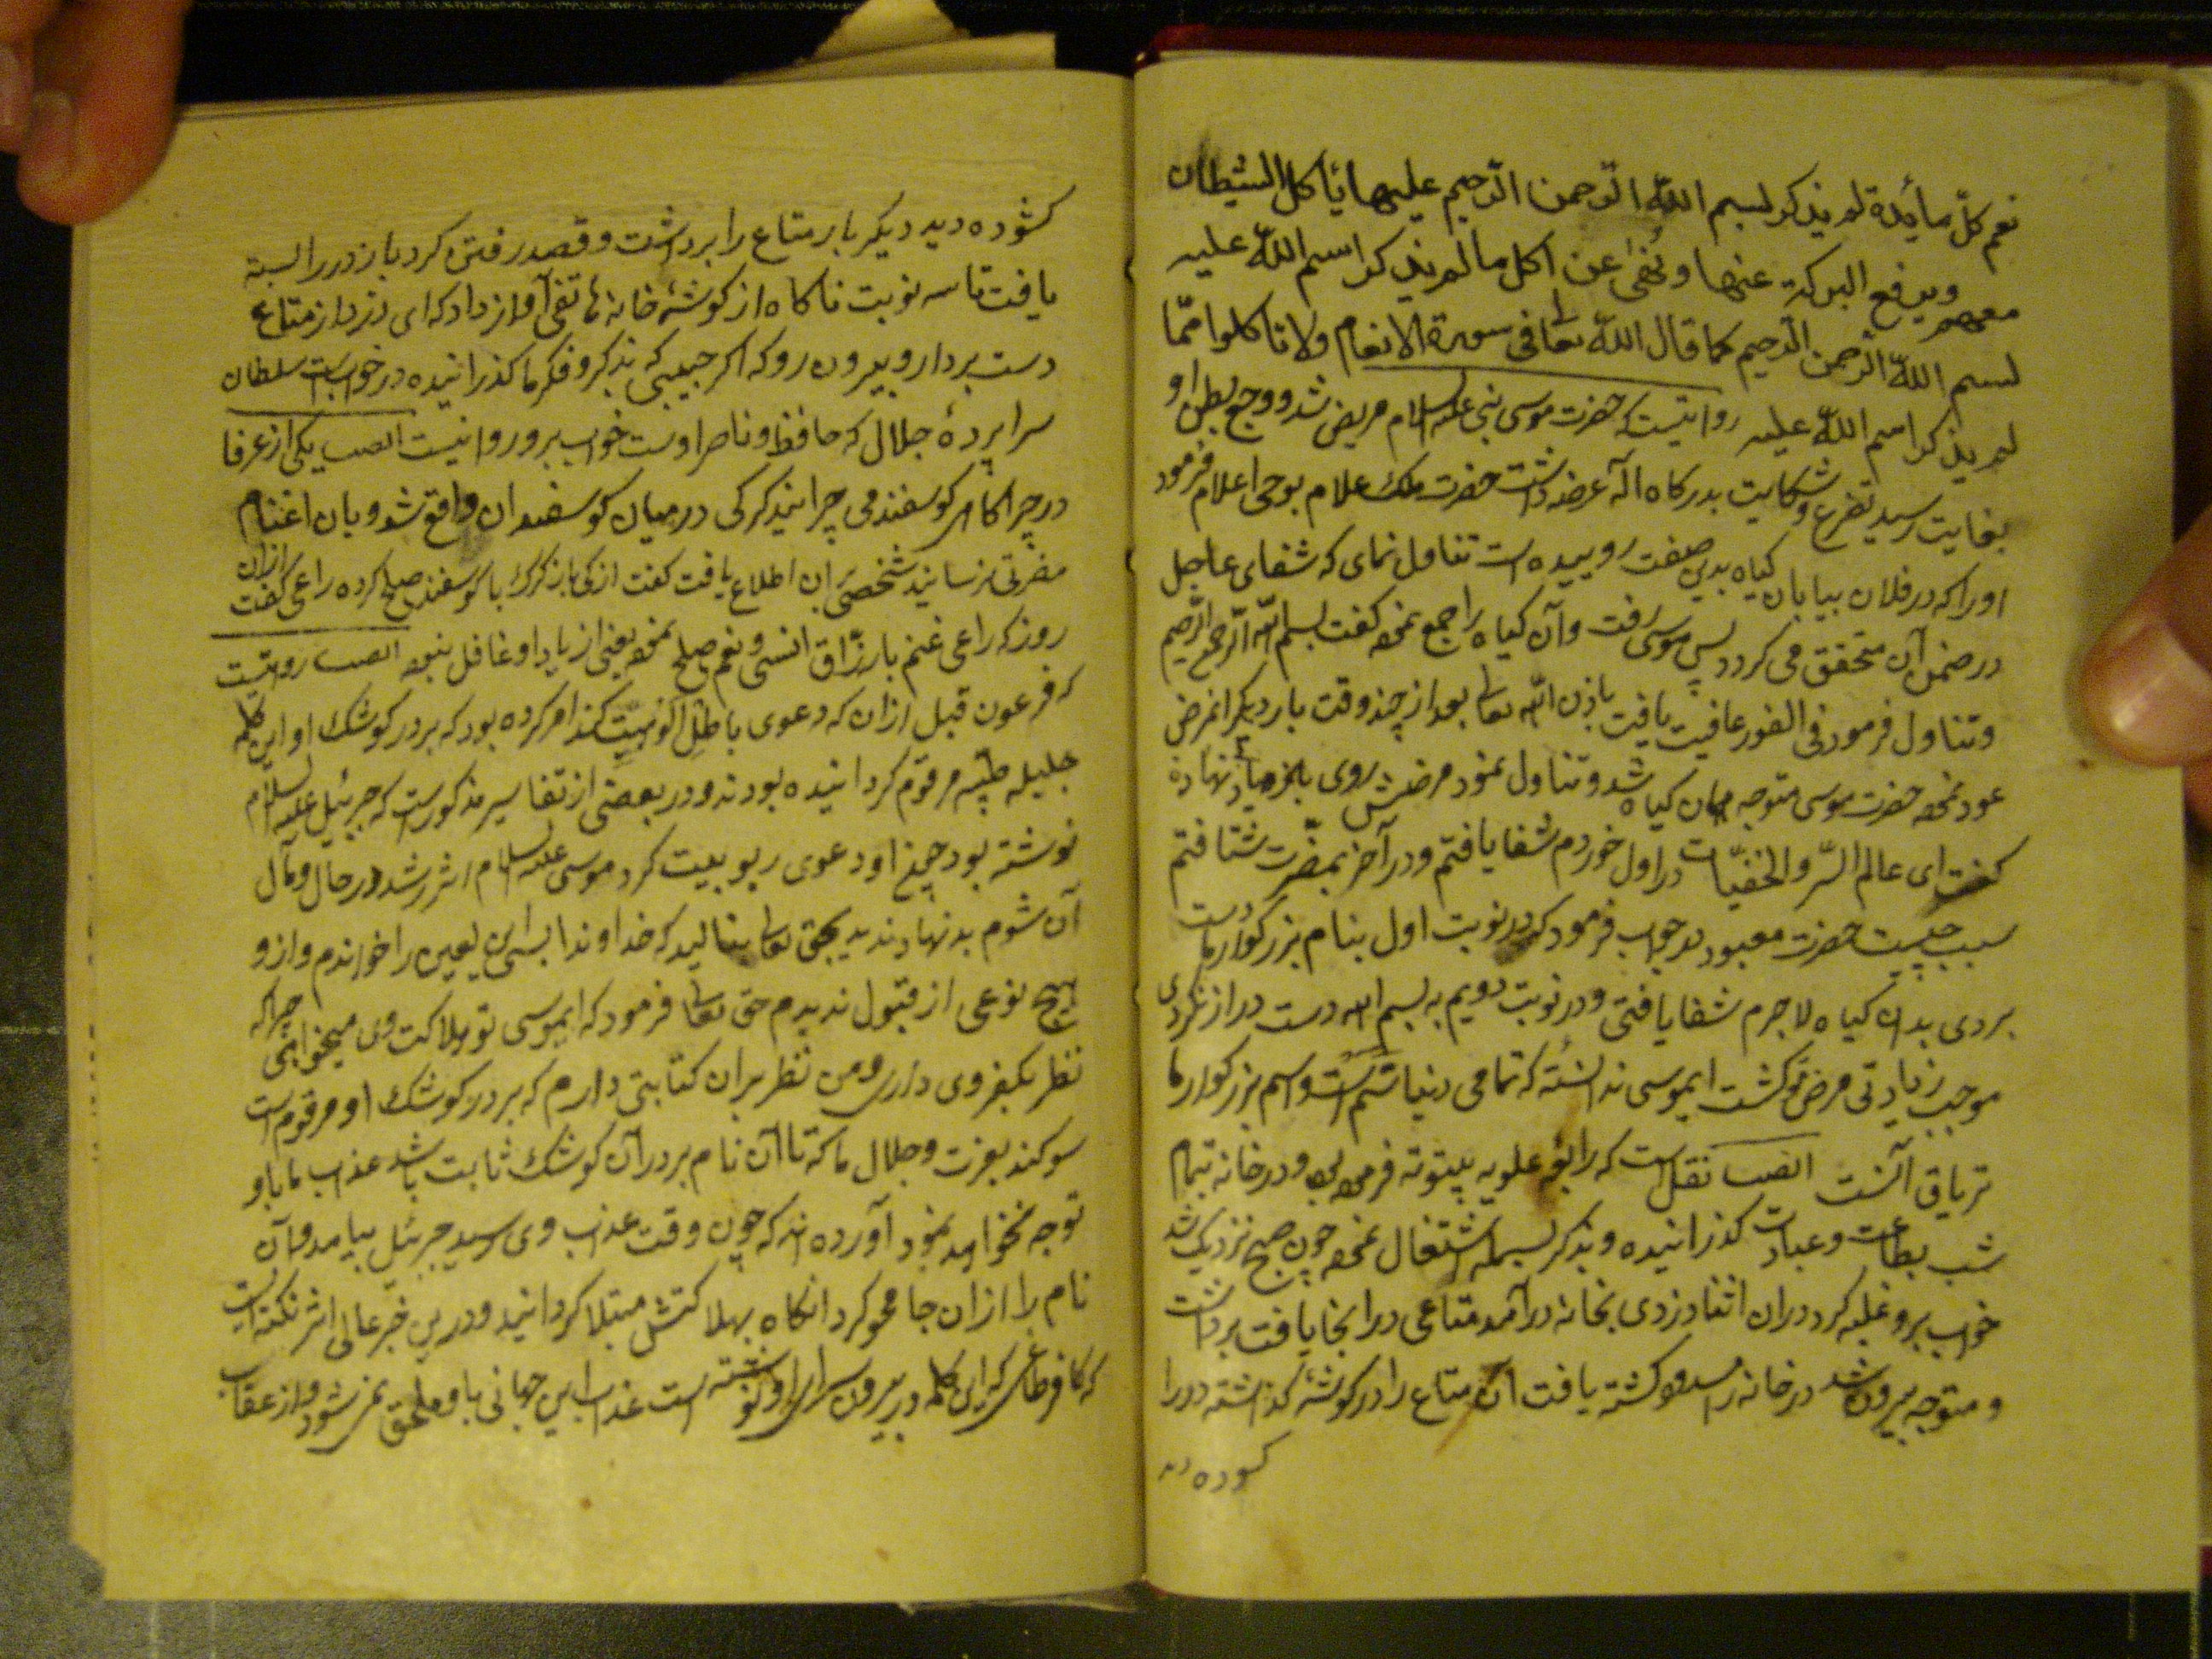 نعم كلّ مأيدة لم يذكر بسم اللّه الرّحمن الرّحيم عليها يأكل الشيطان
معهم ويرفع البركة عنها ونُهى عن اكل مالم يذكر اسم اللّه عليه
بسم اللّه الرّحمن الرّحيم كما قال اللّه تعا فى سورة الانعام ولا تاكلوا ممّا
لم يذكر اسم اللّه عليه روایتیست که حضرت موسی نبی علیه السلام مریض شد ووجع بطن او
بغایت رسید تضرع وشکایت بدرکاه اله عرضه داشت حضرت ملک علام بوحی اعلام فرمود
اورا که در فلان بیابان کیاه بدین صفت روییده است تناول نمای که شفای عاجل
در ضمن آن متحقق می کردد پس موسی رفت وآن کیاه را جمع نمود گفت بسم اللّه الرّحمن الرّحیم
وتناول فرمود فی الفور عافیت یافت باذن اللّه تعا بعد از چند وقت بار دیکر انمرض
عود نمود حضرت موسی متوجه همان کیاه شد وتناول نمود مرضش روی بازدیاد نهاده
گفت ای عالم السّر والخفیّات در اول خوردم شفا یافتم ودر آخر بمضّرت شتافتم
سبب چیست حضرت معبود در جواب فرمود که در نوبت اول بنام بزرکوار ما دست
بردی بدان کیاه لاجرم شفا یافتی ودر نوبت دویم به بسم اللّه دست دراز نکردی
موجب زیادتی مرض تو کشت ایموسی ندانستهٔ که تمامی دنیا سَمّ است واسم بزرکوار ما
تریاق آنست ایضب نقل است که رابعه علویه بیتوته فرموده بود ودر خانه تمام
شب بطاعت وعبادت کذرانیده وبذکر بسمله اشتغال نموده چون صبح نزدیک شد
خواب برو غلبه کرد دران اثنا دزدی بخانه درآمد متاعی در انجا یافت برداشت
ومتوجه بیرون شد در خانه را مسدود کشته یافت آن متاع را در کوشهٔ کذاشته در را
کشوده دید
کشوده دید دیکر بار متاع را برداشت وقصد رفتن کرد باز در را بسته
یافت تا سه نوبت ناکاه از کوشهٔ خانه هاتفی آواز داد که ای دزد از متاع
دست بردار وبیرون رو که اکر حبیبی که بذکر وفکر ما کذرانیده در خوابست سلطان
سراپردهٔ جلال که حافظ وناصر اوست خواب برو روا نیست ایضب یکی از عرفا
در چراکاهی کوسفند می چرانید کرکی در میان کوسفندان واقع شد وبان اغنام
مضرتی نرسانید شخصی بان اطلاع یافت کفت از کی باز کرک با کوسفند صلح کرده راعی کفت ازان
روز که راعی غنم با رزّاق انسی ونعم صلح نموده یعنی از یاد او غافل نبوده ایضب روایتست
که فرعون قبل ازان که دعوی باطل الوهیّت کند امر کرده بود که بر در کوشک او این کلمه
جلیله طیبه مرقوم کردانیده بودند ودر بعضی از تفاسیر مذکور است که جبرئیل علیه السلام
نوشته بود چون او دعوی ربوبیت کرد موسی علیه السلام اثر رشد در حال ومآل
آن شوم بدنهاد ندید بحق تعا بنالید که خداوندا بسی این لعین را خواندم وازو
هیچ نوعی از قبول ندیدم حق تعا فرمود که ایموسی تو هلاکت وی میخواهی چراکه
نظر بکفر وی داری ومن نظر بران کتابتی دارم که بر در کوشک او مرقوم است
سوکند بعزت وجلال ما که تا آن نام بر در آن کوشک ثابت باشد عذاب ما باو
توجه نخواهد نمود آورده اند که چون وقت عذاب وی رسید جبرئیل بیامد وآن
نام را ازان جا محو کرد انکاه بهلاکتش مبتلا کردانید ودرین خبر عالی اثر نکته ایست
که کافر طاغی که این کلمه در بیرون سرای او نوشته است عذاب این جهانی باو ملحق نمی شود واز عقاب